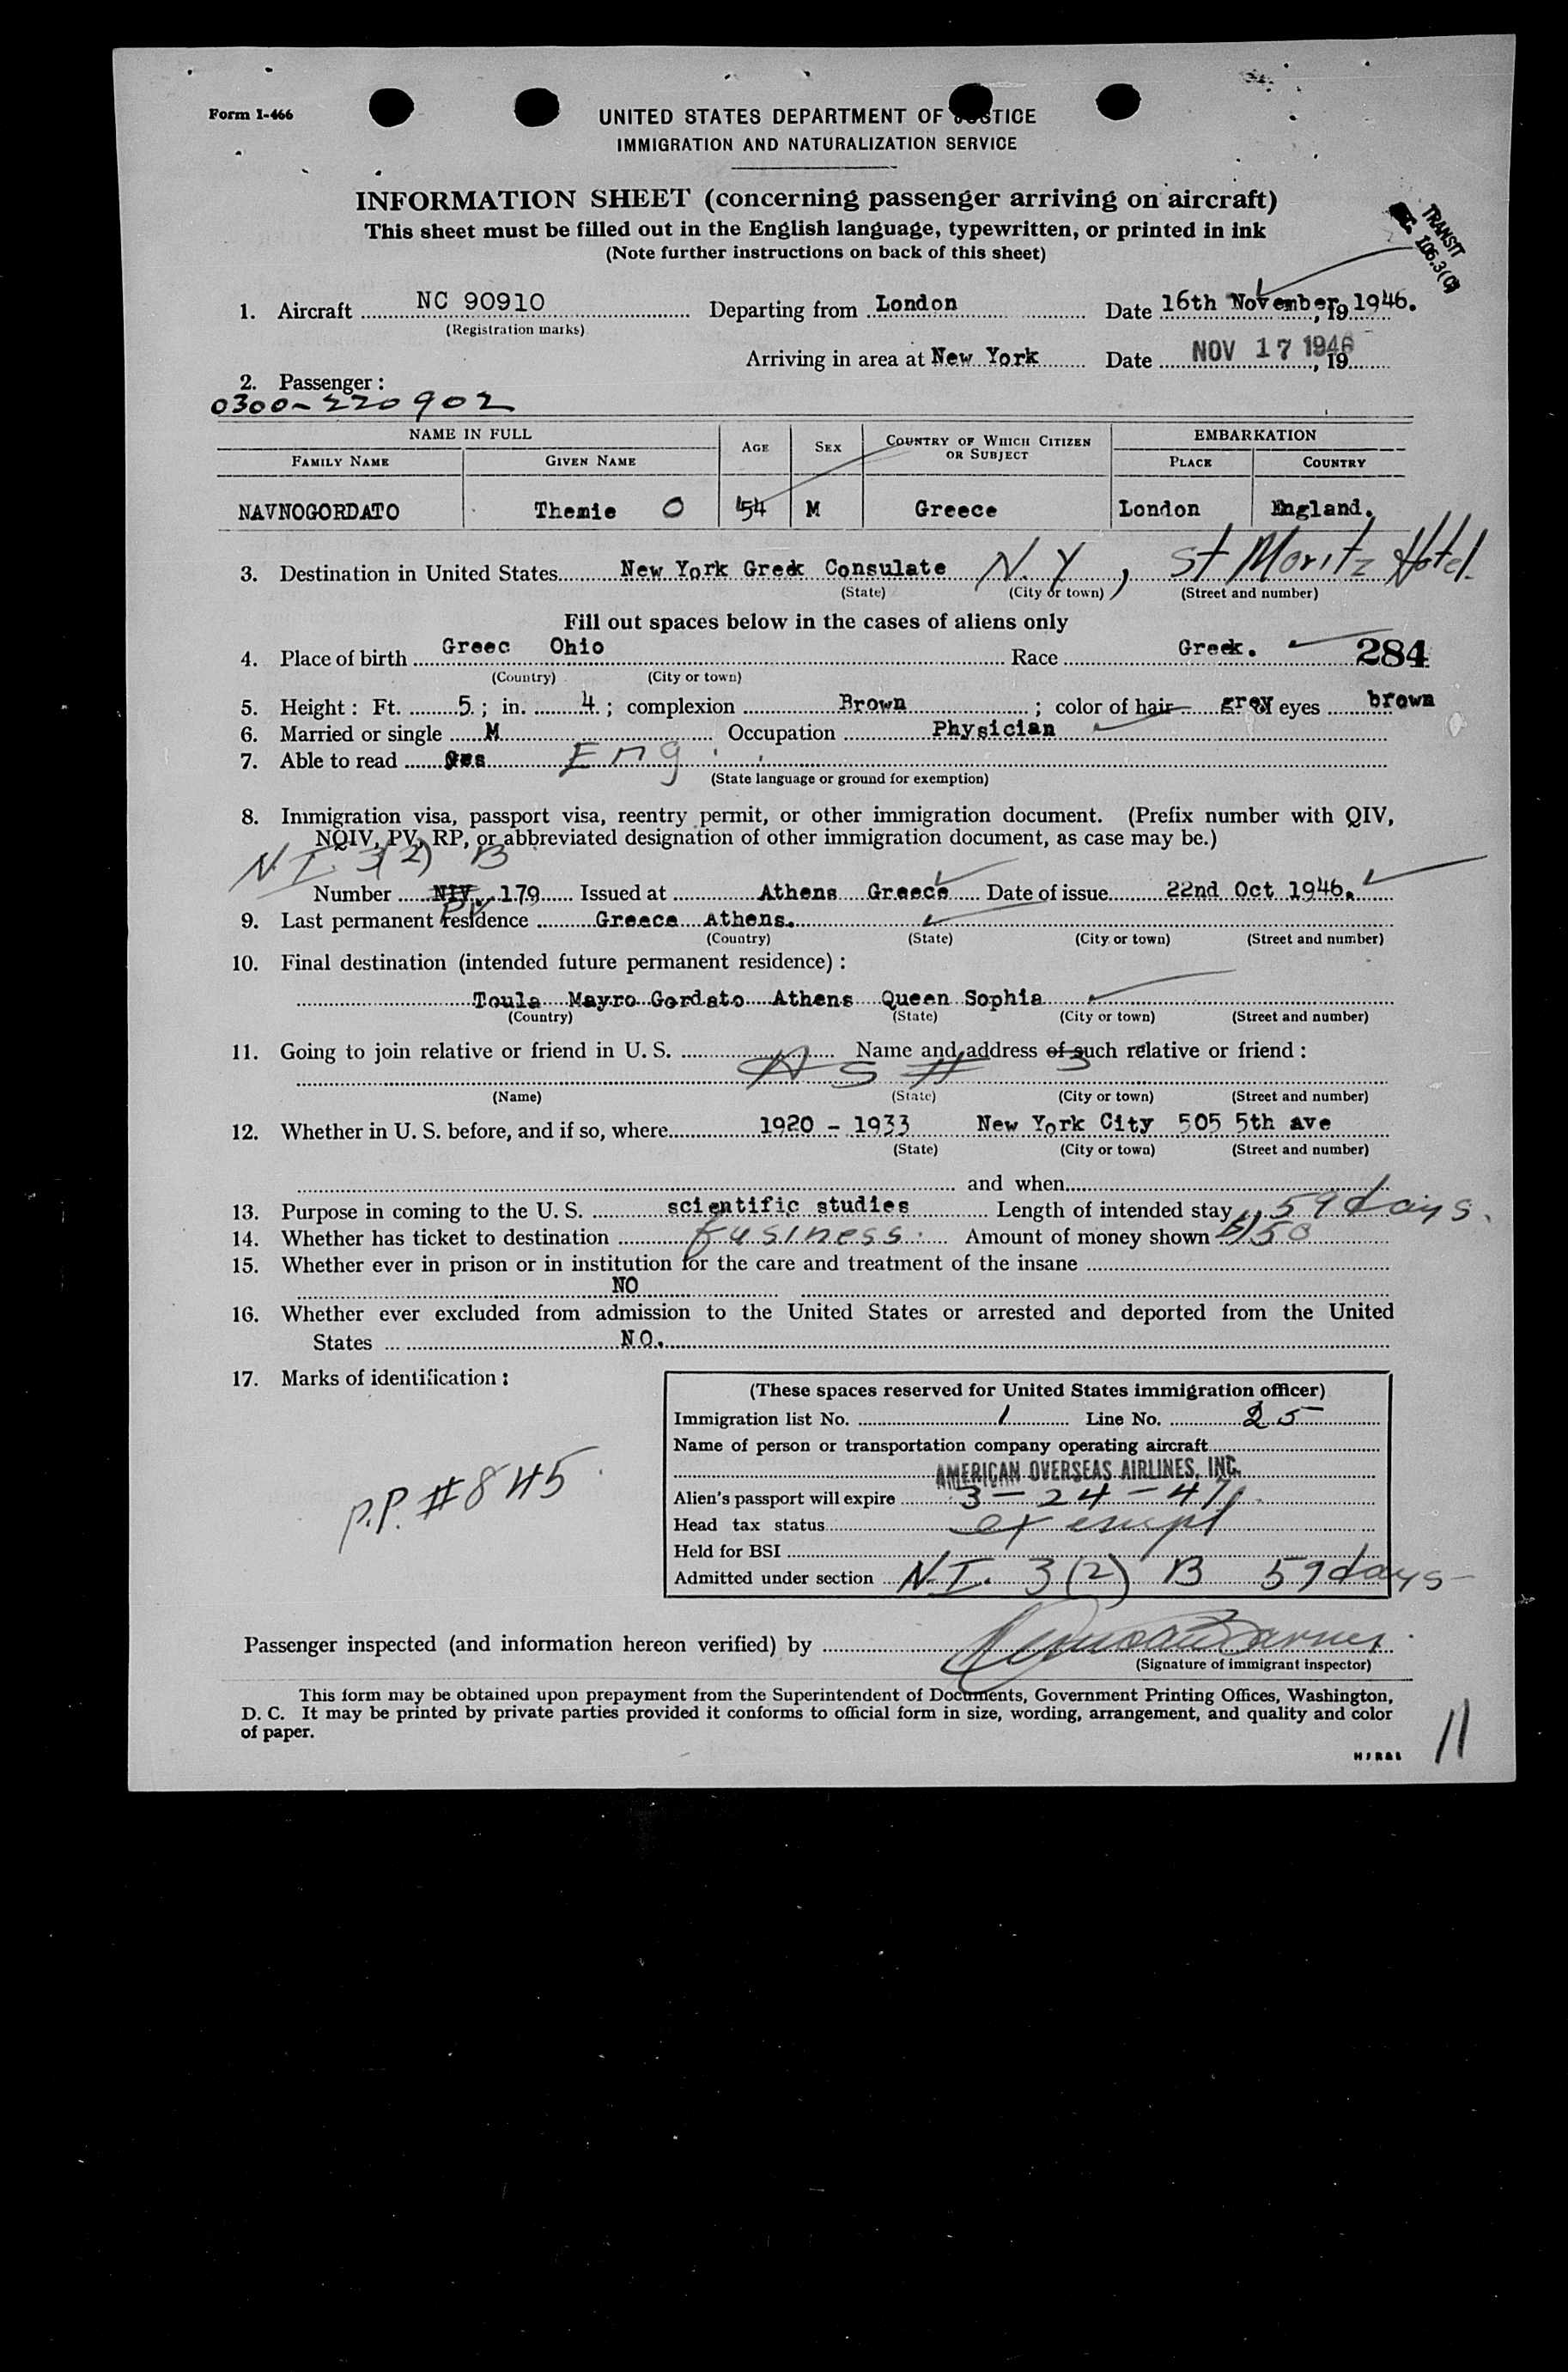 Form I-466
UNITED STATES DEPARTMENT OF JUSTICE
IMMIGRATION AND NATURALIZATION SERVICE
INFORMATION SHEET (concerning passenger arriving on aircraft)
This sheet must be filled out in the English language, typewritten, or printed in ink
(Note further instructions on back of this sheet)
TRANSIT
106.3(C)
1. Aircraft NC 90910 Departing from London Date 16th November, 19 1946.
(Registration marks)
Arriving in area at New York Date NOV 17 1946, 19
2. Passenger:
0300-220902
NAME IN FULL AGE SEX COUNTRY OF WHICH CITIZEN OR SUBJECT EMBARKATION
FAMILY NAME GIVEN NAME PLACE COUNTRY
NAVNOGORDATO Themie O 54 M Greece London England.
3. Destination in United States New York Greek Consulate N.Y, St Moritz Hotel.
(State) (City or town) (Street and number)
Fill out spaces below in the cases of aliens only
4. Place of birth Greec Ohio Race Greek. 284
(Country) (City or town)
5. Height: Ft. 5; in. 4; complexion Brown; color of hair grey eyes brown
6. Married or single M Occupation Physician
7. Able to read yes Eng
(State language or ground for exemption)
8. Immigration visa, passport visa, reentry permit, or other immigration document. (Prefix number with QIV,
NQIV, PV, RP, or abbreviated designation of other immigration document, as case may be.)
N.I. 3(2) B
Number NIV. 179 Issued at Athens Greece Date of issue 22nd Oct 1946.
PV
9. Last permanent residence Greece Athens.
(Country) (State) (City or town) (Street and number)
10. Final destination (intended future permanent residence):
Toula Mayro Gordato Athens Queen Sophia
(Country) (State) (City or town) (Street and number)
11. Going to join relative or friend in U. S. Name and address of such relative or friend:
AS # 3
(Name) (State) (City or town) (Street and number)
12. Whether in U. S. before, and if so, where 1920 - 1933 New York City 505 5th ave
(State) (City or town) (Street and number)
and when
13. Purpose in coming to the U. S. scientific studies Length of intended stay 59 days.
14. Whether has ticket to destination business. Amount of money shown $150
15. Whether ever in prison or in institution for the care and treatment of the insane
NO
16. Whether ever excluded from admission to the United States or arrested and deported from the United
States NO.
17. Marks of identification:
P.P. #845
(These spaces reserved for United States immigration officer)
Immigration list No. 1 Line No. 25
Name of person or transportation company operating aircraft
AMERICAN OVERSEAS AIRLINES, INC.
Alien's passport will expire 3-24-47
Head tax status exempt
Held for BSI
Admitted under section N.I. 3(2) B 59 days
Passenger inspected (and information hereon verified) by
(Signature of immigrant inspector)
This form may be obtained upon prepayment from the Superintendent of Documents, Government Printing Offices, Washington,
D. C. It may be printed by private parties provided it conforms to official form in size, wording, arrangement, and quality and color
of paper.
11